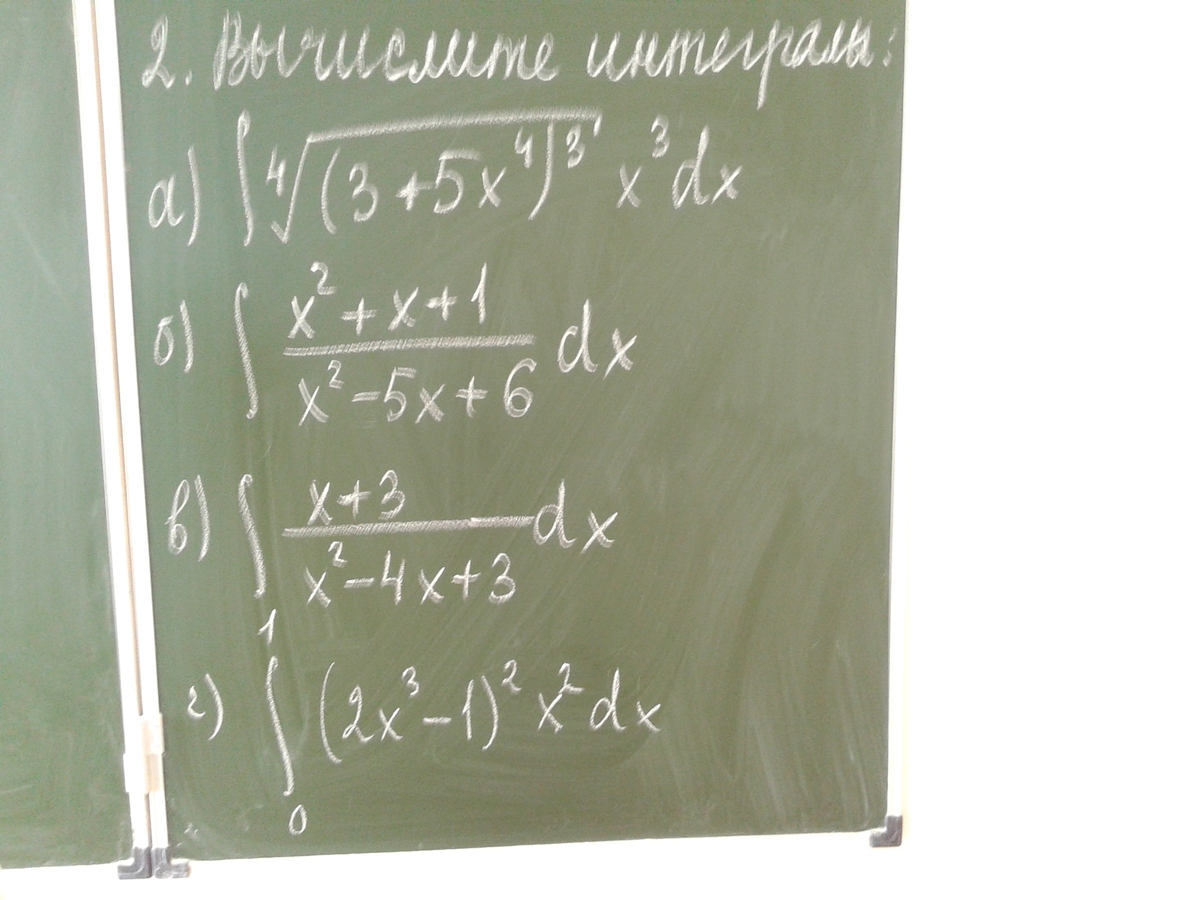 2. Вычислите интегралы:
а) ∫ ⁴√((3+5x⁴)³) x³dx
б) ∫ (x²+x+1)/(x²-5x+6) dx
в) ∫ (x+3)/(x²-4x+3) dx
г) ∫₀¹ (2x³-1)² x² dx